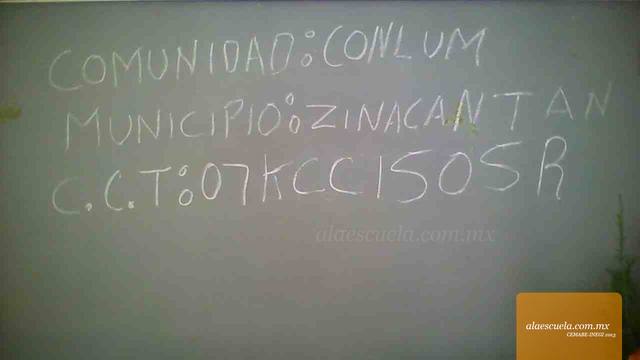 COMUNIDAD:CONLUM
MUNICIPIO:ZINACANTAN
C.C.T:07KCC1505R
alaescuela.com.mx
alaescuela.com.mx
CEMABE-INEGI 2013